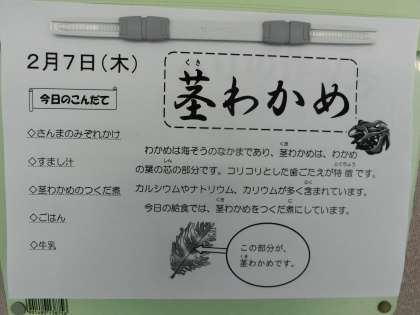 2月7日(木)
茎わかめ
くき
今日のこんだて
◇さんまのみぞれかけ
◇すまし汁
◇茎わかめのつくだ煮
◇ごはん
◇牛乳
わかめは海そうのなかまであり、茎わかめは、わかめ
の葉の芯の部分です。コリコリとした歯ごたえが特徴です。
カルシウムやナトリウム、カリウムが多く含まれています。
今日の給食では、茎わかめをつくだ煮にしています。
この部分が、
茎わかめです。